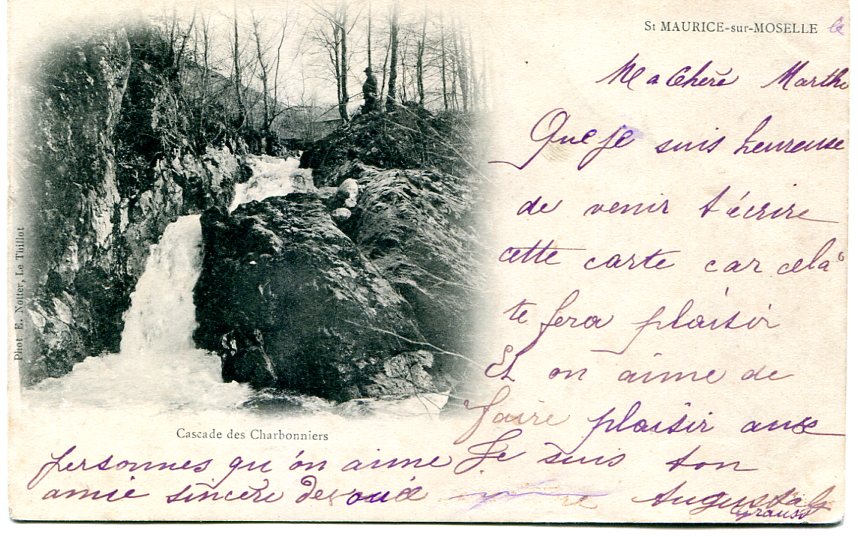 St MAURICE-sur-MOSELLE le
Ma Chère Marthe
Que je suis heureuse
de venir t'écrire
cette carte car celà
te fera plaisir
Et on aime de
faire plaisir aux
personnes qu'on aime Je suis ton
amie sincère
Augusta
Cascade des Charbonniers
Phot. E. Notter, Le Thillot